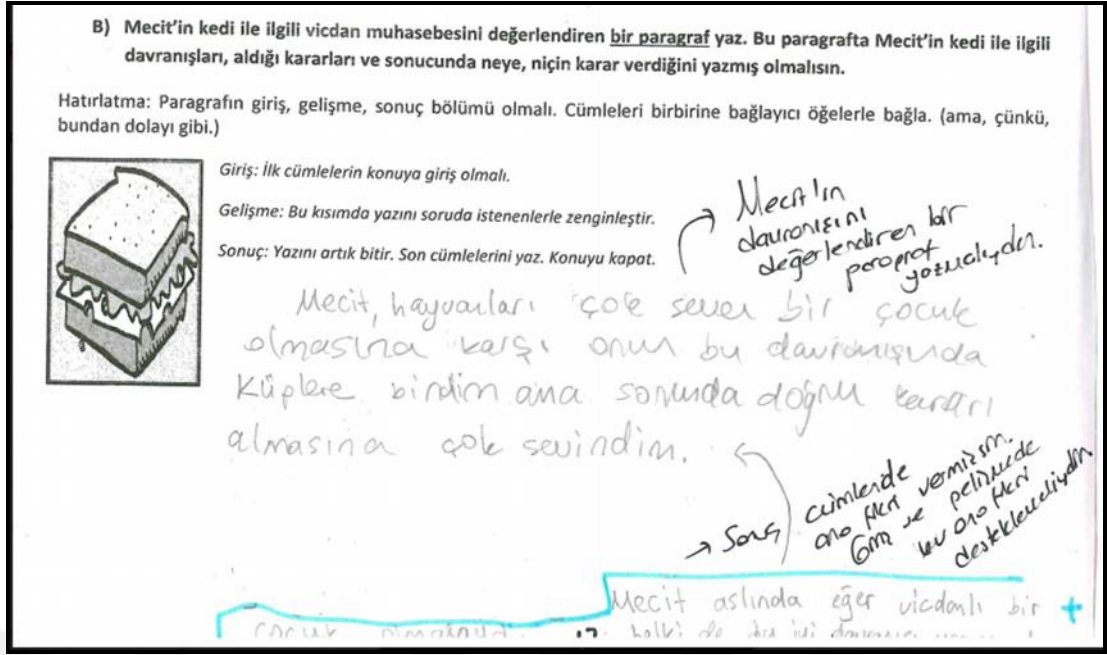 B) Mecit'in kedi ile ilgili vicdan muhasebesini değerlendiren bir paragraf yaz. Bu paragrafta Mecit'in kedi ile ilgili
davranışları, aldığı kararları ve sonucunda neye, niçin karar verdiğini yazmış olmalısın.
Hatırlatma: Paragrafın giriş, gelişme, sonuç bölümü olmalı. Cümleleri birbirine bağlayıcı öğelerle bağla. (ama, çünkü,
bundan dolayı gibi.)
Giriş: İlk cümlelerin konuya giriş olmalı.
Gelişme: Bu kısımda yazını soruda istenenlerle zenginleştir.
Sonuç: Yazını artık bitir. Son cümlelerini yaz. Konuyu kapat.
Mecit'in
davranışını
değerlendiren bir
paragraf
yazmalıydın.
Mecit, hayvanları çok seven bir çocuk
olmasına karşı onun bu davranışında
Küplere bindim ama sonunda doğru kararı
almasına çok sevindim.
→ Sonuç cümlende
ana fikri vermişsin.
ve gelişmede
bu ana fikri
desteklemeliydin
Mecit aslında eğer vicdanlı bir +
çocuk olmasaydı